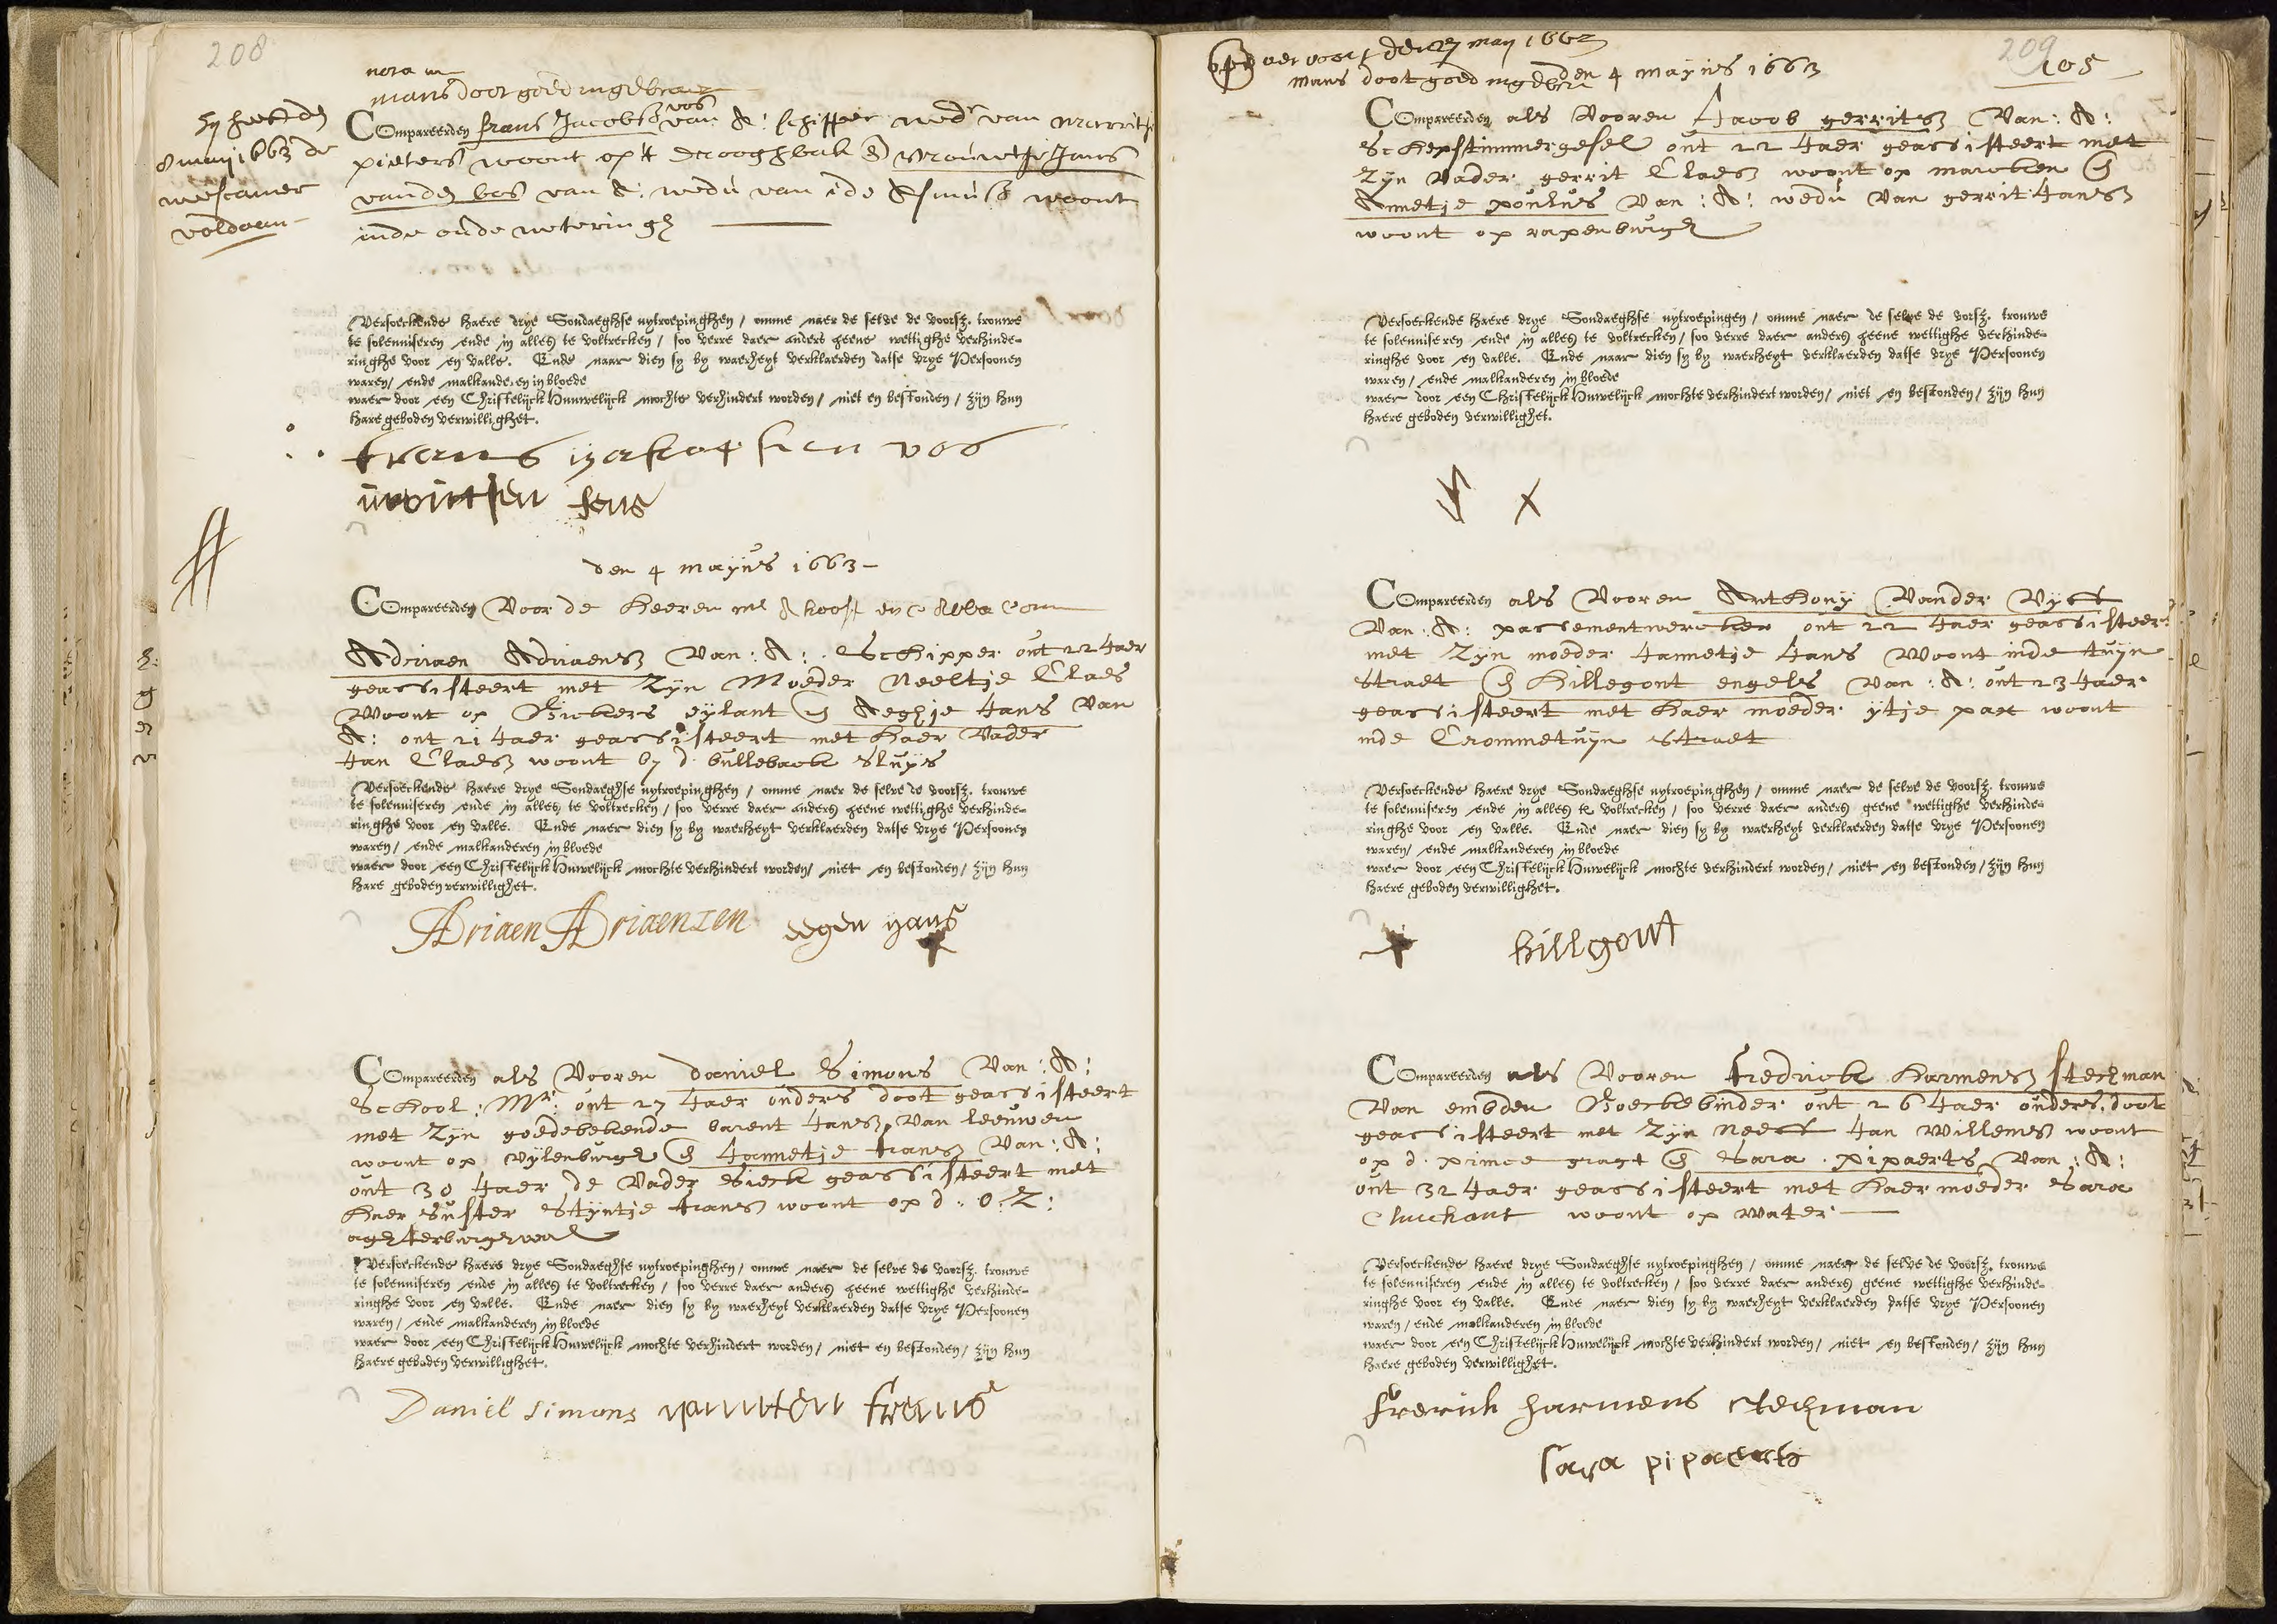 208
mans doot goed ingebracht
hy heeft den
8 mey 1663 de
weescamer
voldaen
Compareerden frans Jacobsz vos van A: schipper wedr van marritje
pieters woont op 't drooghbak & vrouwtje Jans
vanden bos van A: wedu van ide Asmusz woont
inde oude weteringh
Versoeckende haere drye Sondaeghse uytroepinghen / omme naer de selve de voorsz. trouwe
te solenniseren ende in alles te voltrecken / soo verre daer anders geene wettighe verhinde-
ringhe voor en valle. Ende naar dien sy by waerheyt verklaerden datse vrye Persoonen
waren / ende malkanderen in bloede
waer door een Christelijck Huwelijck mochte verhindert worden / niet en bestonden / zijn hun
hare geboden verwillighet.
frans vos
den 4 mayus 1663
Compareerden Voor de Heeren
Adriaen Adriaensz Van : A : Schipper out 22 Jaer
geassisteert met Zyn Moeder Neeltje Claes
Woont op Bickers eylant & Aeghje Jans Van
A : out 21 Jaer geassisteert met Haer Vader
Jan Claesz woont by d bulleback sluys
Versoeckende haere drye Sondaeghse uytroepinghen / omme naer de selve de voorsz. trouwe
te solenniseren ende in alles te voltrecken / soo verre daer anders geene wettighe verhinde-
ringhe voor en valle. Ende naer dien sy by waerheyt verklaerden datse vrye Persoonen
waren / ende malkanderen in bloede
waer door een Christelijck Huwelijck mochte verhindert worden / niet en bestonden / zijn hun
hare geboden verwillighet.
Adriaen Adriaenzen eegen yans
Compareerden als Vooren daniel Simons Van : A :
School : Mr : out 27 Jaer ouders doot geassisteert
met Zyn goedebekende barent Jansz Van leeuwen
woont op Uylenburgh & Jannetje fransz Van : A :
out 30 Jaer de Vader sieck geassisteert met
Haer Suster Styntje fransz woont op d : O : Z :
aghterburghwal
Versoeckende haere drye Sondaeghse uytroepinghen / omme naer de selve de voorsz. trouwe
te solenniseren ende in alles te voltrecken / soo verre daer anders geene wettighe verhinde-
ringhe voor en valle. Ende naer dien sy by waerheyt verklaerden datse vrye Persoonen
waren / ende malkanderen in bloede
waer door een Christelijck Huwelijck mochte verhindert worden / niet en bestonden / zijn hun
haere geboden verwillighet.
Daniel Simons yannetien frans
209
105
den 27 may 1662
mans doot goed ingebra
den 4 mayus 1663
Compareerden als Vooren Jacob gerritsz Van : A :
Scheepstimmergesel out 22 Jaer geassisteert met
Zyn Vader gerrit Claesz woont op marcken &
Annetje poulus Van : A : wedu Van gerrit Jansz
woont op rapenburgh
Versoeckende haere drye Sondaeghse uytroepingen / omme naer de selve de vorsz. trouwe
te solenniseren ende in alles te voltrecken / soo verre daer anders geene wettighe verhinde-
ringhe voor en valle. Ende naar dien sy by waerheyt verklaerden datse vrye Persoonen
waren / ende malkanderen in bloede
waer door een Christelijck Huwelijck mochte verhindert worden / niet en bestonden / zijn hun
haere geboden verwillighet.
X
Compareerden als Vooren Anthony Vander Vyss
Van : A : passementwercker out 22 Jaer geassisteert
met Zyn moeder Jannetje Jans Woont inde tuyn
straet & Hillegont engels Van : A : out 23 Jaer
geassisteert met Haer moeder ytje paer woont
inde Crommetuyn straet
Versoeckende haere drye Sondaeghse uytroepinghen / omme naer de selve de voorsz. trouwe
te solenniseren ende in alles te voltrecken / soo verre daer anders geene wettighe verhinde-
ringhe voor en valle. Ende naer dien sy by waerheyt verklaerden datse vrye Persoonen
waren / ende malkanderen in bloede
waer door een Christelijck Huwelijck mochte verhindert worden / niet en bestonden / zijn hun
haere geboden verwillighet.
hillgont
Compareerden als Vooren fredrick Harmensz stechman
Van embden Boeckebinder out 26 Jaer ouders doot
geassisteert met Zyn Neef Jan Willemsz woont
op d prince graft & Sara pipaerts Van : A :
out 32 Jaer geassisteert met Haer moeder Sara
woont op Water
Versoeckende haere drye Sondaeghse uytroepinghen / omme naer de selve de voorsz. trouwe
te solenniseren ende in alles te voltrecken / soo verre daer anders geene wettighe verhinde-
ringhe voor en valle. Ende naer dien sy by waerheyt verklaerden datse vrye Persoonen
waren / ende malkanderen in bloede
waer door een Christelijck Huwelijck mochte verhindert worden / niet en bestonden / zijn hun
haere geboden verwillighet.
frerick harmens stechman
sara pipaerts